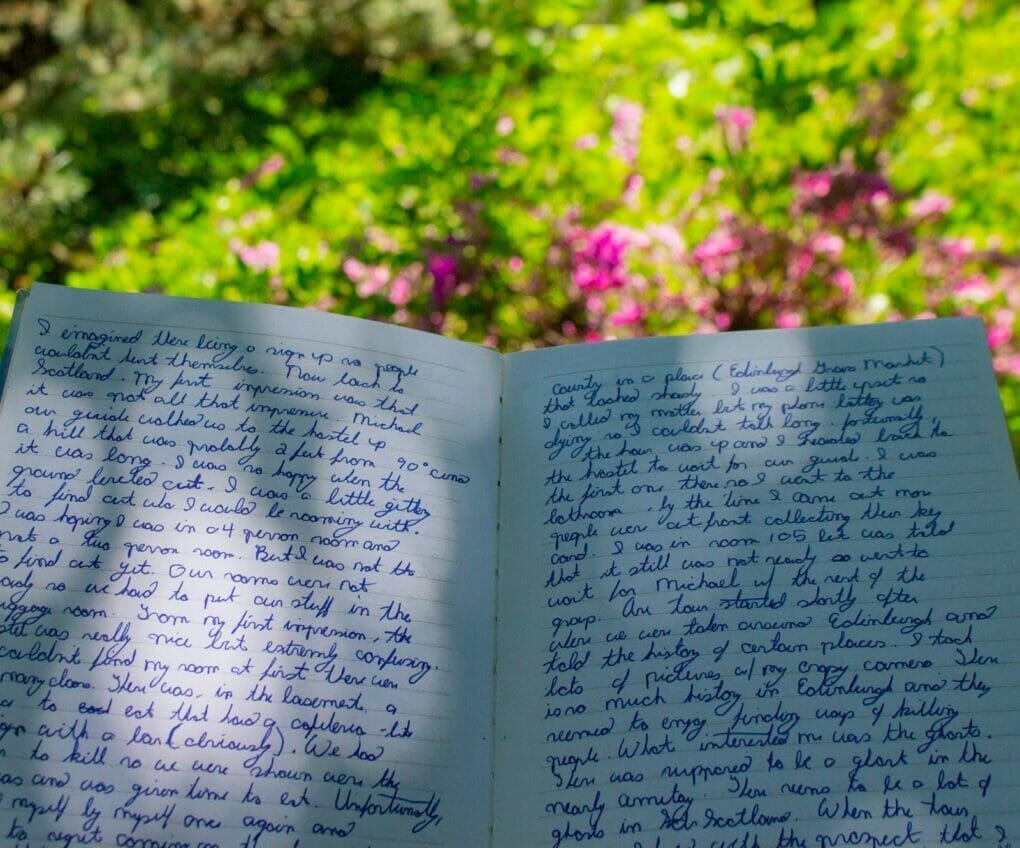 I imagined there being a sign up so people
wouldn't hurt themselves. Now back to
Scotland. My first impression was that
it was not all that impressive. Michael
our guide walked us to the hostel up
a hill that was probably 2 feet from 90° and
it was long. I was so happy when the
ground leveled out. I was a little gittery
to find out who I would be rooming with.
I was hoping I was in a 4 person room and
not a two person room. But I was not to
find out yet. Our rooms were not
ready so we had to put our stuff in the
luggage room. From my first impression, the
was really nice but extremely confusing.
couldn't find my room at first there were
many doors. There was, in the basement, a
to eat that had a cafeteria
with a bar (obviously). We had
to kill so we were shown were the
was and was given time to eat. Unfortunately,
myself by myself once again and
to
County in a place (Edinburgh Grass Market)
that looked shady. I was a little upset so
I called my mother but my phone battery was
dying so I couldn't talk long. fortunatly,
the hour was up and I headed back to
the hostel to wait for our guide. I was
the first one there so I went to the
bathroom, by the time I came out more
people were out front collecting their key
card. I was in room 105 but was told
that it still was not ready so went to
wait for Michael w/ the rest of the
group. Our tour started shortly after
were we were taken around Edinburgh and
told the history of certain places. I took
lots of pictures w/ my crapy camera. There
is so much history in Edinburgh and they
seemed to enjoy finding ways of killing
people. What interested me was the ghosts.
There was supposed to be a ghost in the
nearby There seems to be a lot of
ghosts in Scotland. When the tour
with the prospect that I